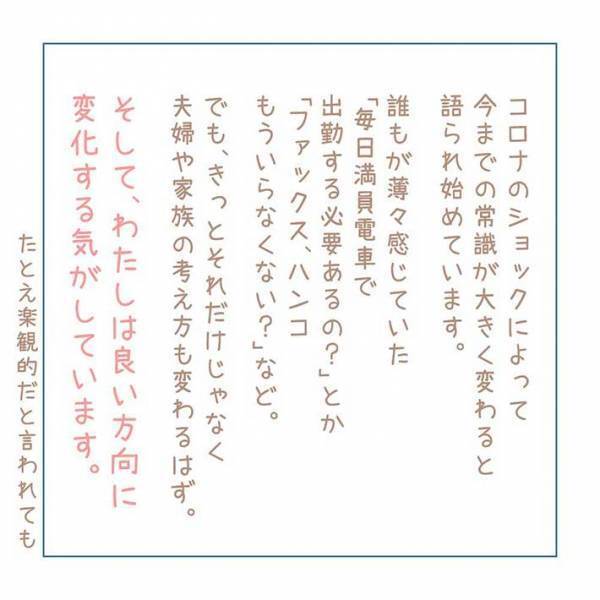 コロナのショックによって
今までの常識が大きく変わると
語られ始めています。
誰もが薄々感じていた
「毎日満員電車で
出勤する必要あるの?」とか
「ファックス、ハンコ
もういらなくない?」など。
でも、きっとそれだけじゃなく
夫婦や家族の考え方も変わるはず。
そして、わたしは良い方向に
変化する気がしています。
たとえ楽観的だと言われても